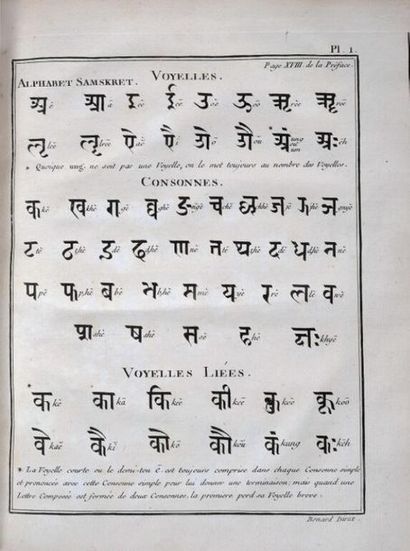 Pl. 1.
Page XVIII de la Préface.
ALPHABET SAMSKRET. VOYELLES.
अ ĕ आ ā इ ĕĕ ई ēē उ ŏŏ ऊ ōō ऋ rĕĕ ॠ rēē
ऌ lrĕĕ ॡ lrēē ए aē ऐ ī ओ ō औ ōŭ अं ung अः ĕh
* Quoique ung, ne soit pas une Voyelle, on le met toujours au nombre des Voyelles.
CONSONNES.
क kĕ ख khĕ ग gĕ घ ghĕ ङ च chĕ छ chhĕ ज jĕ झ jhĕ ञ
ट tĕ ठ thĕ ड dĕ ढ dhĕ ण nĕ त tĕ थ thĕ द dĕ ध dhĕ न nĕ
प pĕ फ phĕ ब bĕ भ bhĕ म mĕ य yĕ र rĕ ल lĕ व wĕ
श shĕ ष shĕ स sĕ ह hĕ क्ष khyĕ
VOYELLES LIÉES.
* क kĕ का kā कि kĕĕ की kēē कु kŏŏ कू kōō
के kaē कै kī को kō कौ kōŭ कं kung कः kĕh
* La Voyelle courte ou le demi-ton ĕ est toujours comprise dans chaque Consonne simple
et prononcée avec cette Consonne simple pour lui donner une terminaison; mais quand une
Lettre Composée est formée de deux Consonnes, la premiere perd sa Voyelle breve.
Benard Direx.